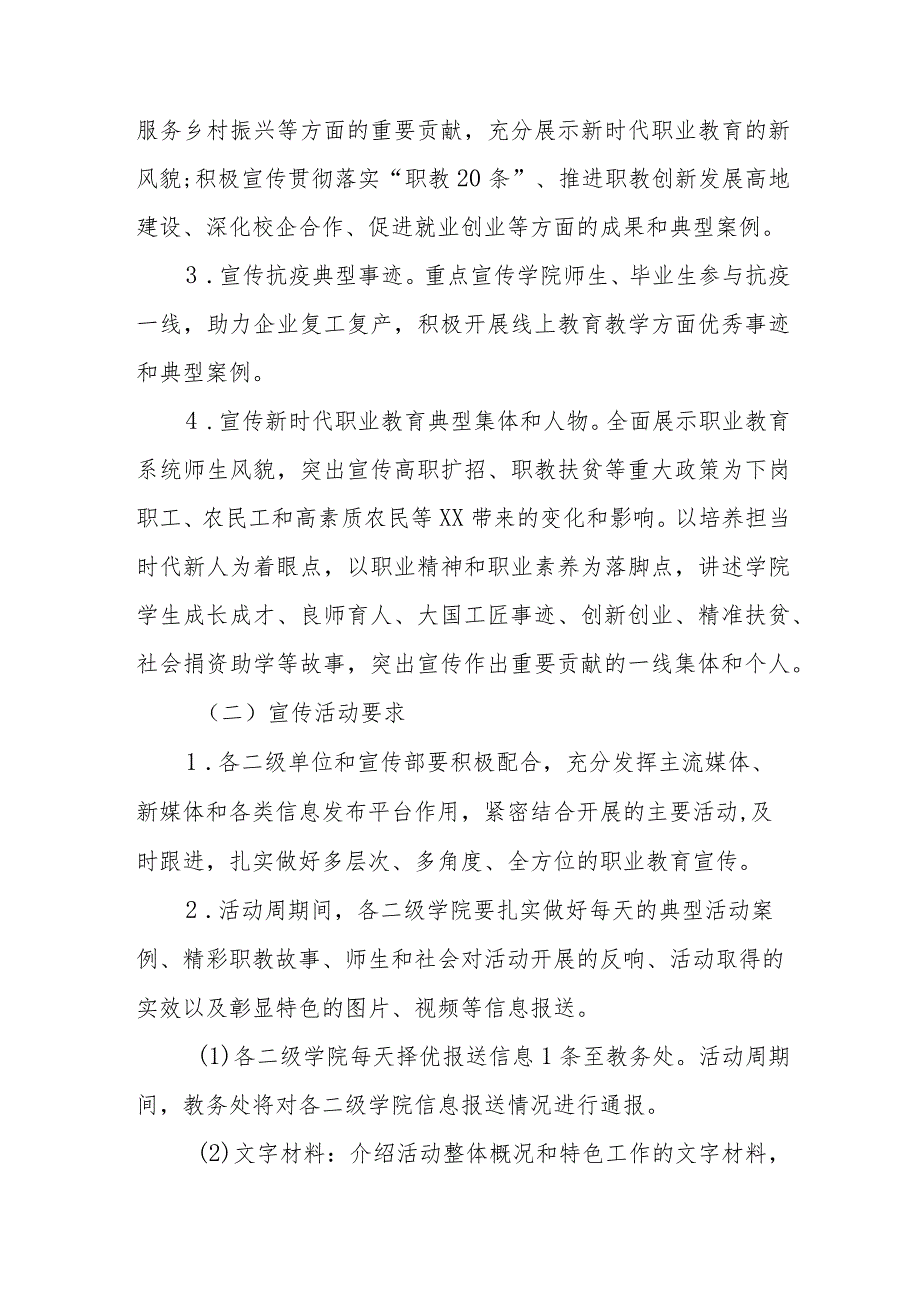 服务乡村振兴等方面的重要贡献，充分展示新时代职业教育的新
风貌;积极宣传贯彻落实“职教20条”、推进职教创新发展高地
建设、深化校企合作、促进就业创业等方面的成果和典型案例。
3.宣传抗疫典型事迹。重点宣传学院师生、毕业生参与抗疫
一线，助力企业复工复产，积极开展线上教育教学方面优秀事迹
和典型案例。
4.宣传新时代职业教育典型集体和人物。全面展示职业教育
系统师生风貌，突出宣传高职扩招、职教扶贫等重大政策为下岗
职工、农民工和高素质农民等XX带来的变化和影响。以培养担当
时代新人为着眼点，以职业精神和职业素养为落脚点，讲述学院
学生成长成才、良师育人、大国工匠事迹、创新创业、精准扶贫、
社会捐资助学等故事，突出宣传作出重要贡献的一线集体和个人。
（二）宣传活动要求
1.各二级单位和宣传部要积极配合，充分发挥主流媒体、
新媒体和各类信息发布平台作用，紧密结合开展的主要活动,及
时跟进，扎实做好多层次、多角度、全方位的职业教育宣传。
2.活动周期间，各二级学院要扎实做好每天的典型活动案
例、精彩职教故事、师生和社会对活动开展的反响、活动取得的
实效以及彰显特色的图片、视频等信息报送。
(1)各二级学院每天择优报送信息1条至教务处。活动周期
间，教务处将对各二级学院信息报送情况进行通报。
(2)文字材料：介绍活动整体概况和特色工作的文字材料，